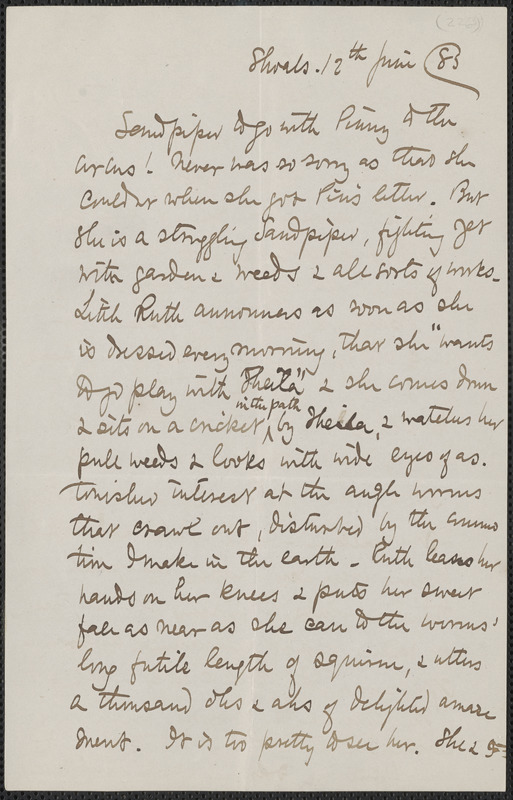 Shoals. 12th June 83
Sandpiper to go with Pinny to the
circus! Never was so sorry as that she
couldn't when she got Pin's letter. But
she is a struggling Sandpiper, fighting yet
with garden & weeds & all sorts of works.
Little Ruth announces as soon as she
is dressed every morning, that she "wants
to go play with Sheila" & she comes down
& sits on a cricket in the path by Sheila, & watches her
pull weeds & looks with wide eyes of as-
tonished interest at the angle worms
that crawl out, disturbed by the commo
tion I make in the earth. Ruth leans her
hands on her knees & puts her sweet
face as near as she can to the worms'
long futile length of squirm, & utters
a thousand ohs & ahs of delighted amaze
ment. It is too pretty to see her. She & I